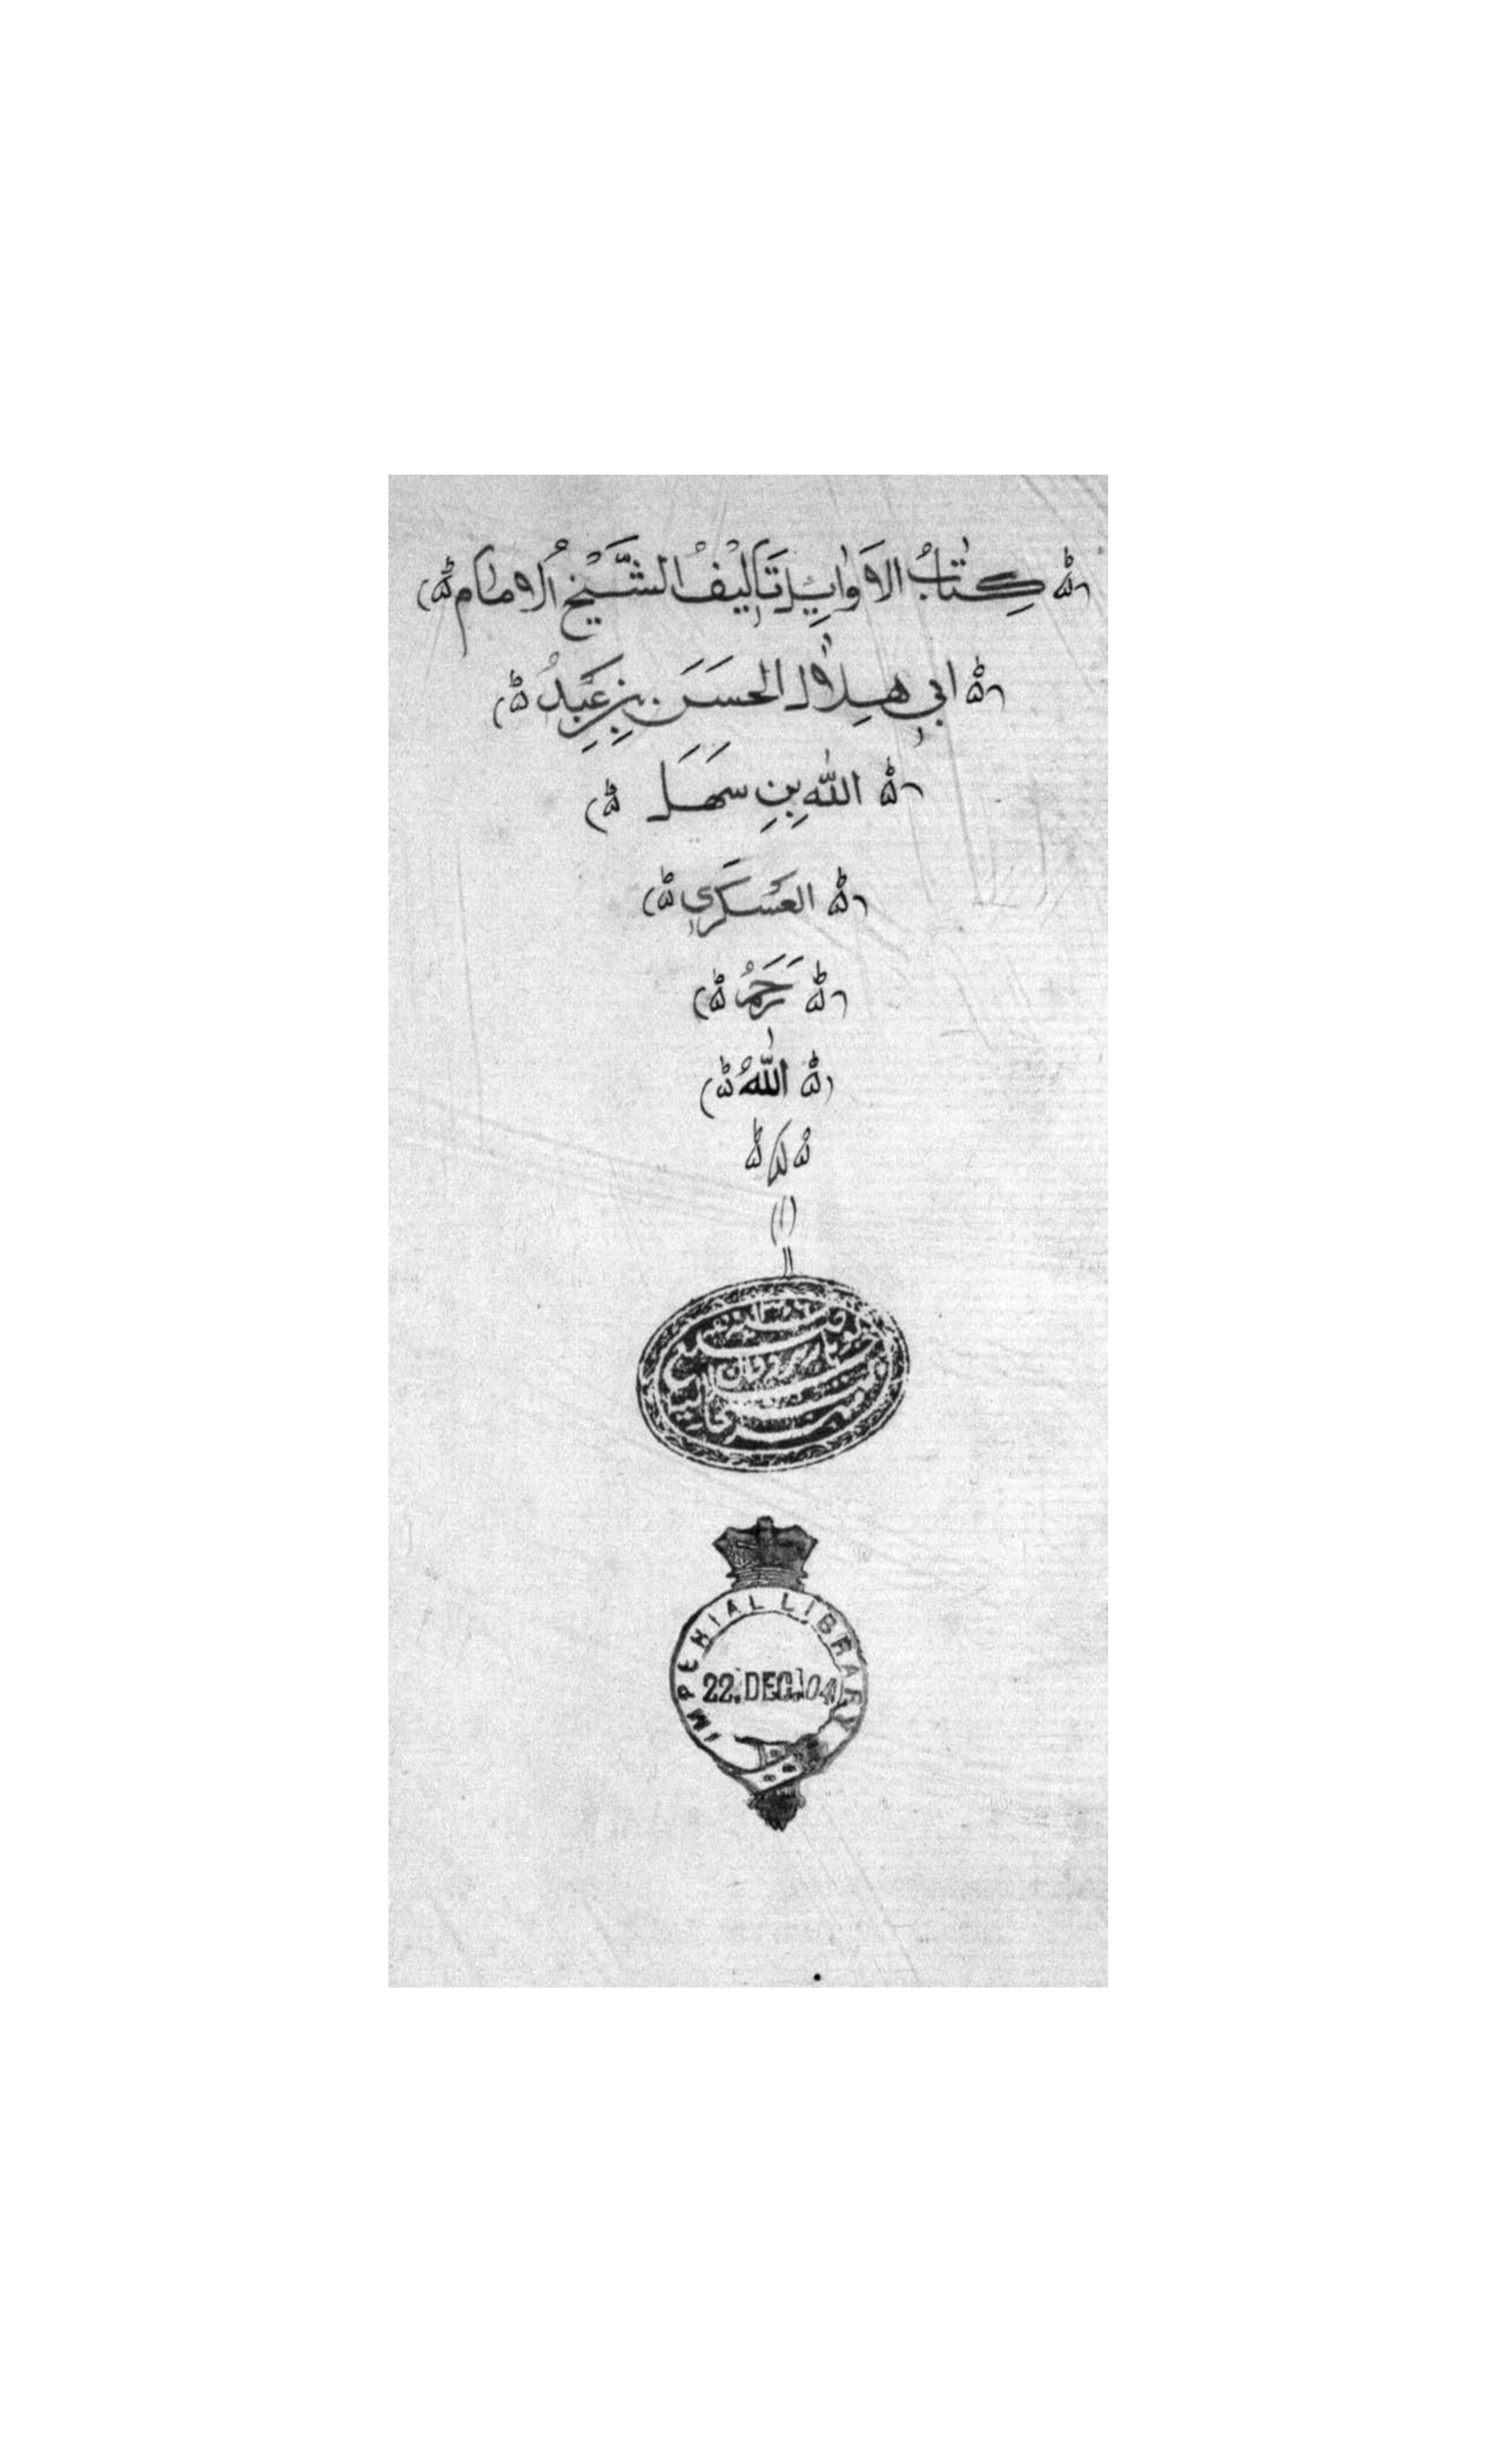 كِتٰابُ الاَوٰايِلِ تَالِيفُ الشَّيْخِ الامٰام
ابي هِلٰال الحَسَنَ بنِ عَبْدُ
اللّٰه بِنِ سَهَل
العَسكَري
رَحِمَهُ
اللّٰهُ
IMPERIAL LIBRARY
22. DEC. 04